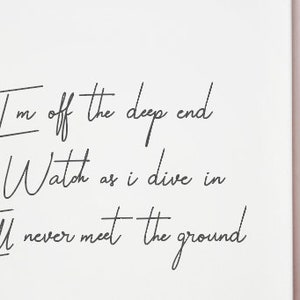 I'm off the deep end
Watch as i dive in
I'll never meet the ground